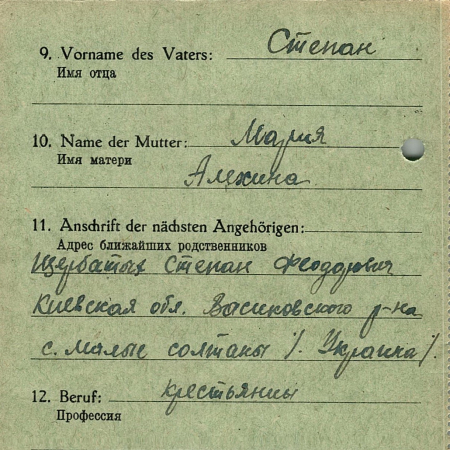 9. Vorname des Vaters: Степан
Имя отца
10. Name der Mutter: Мария
Имя матери
Алехина
11. Anschrift der nächsten Angehörigen:
Адрес ближайших родственников
Щербатых Степан Феодорович
Киевская обл. Васиковского р-на
с. Малые солтаны /. Украина /.
12. Beruf: крестьяниы
Профессия